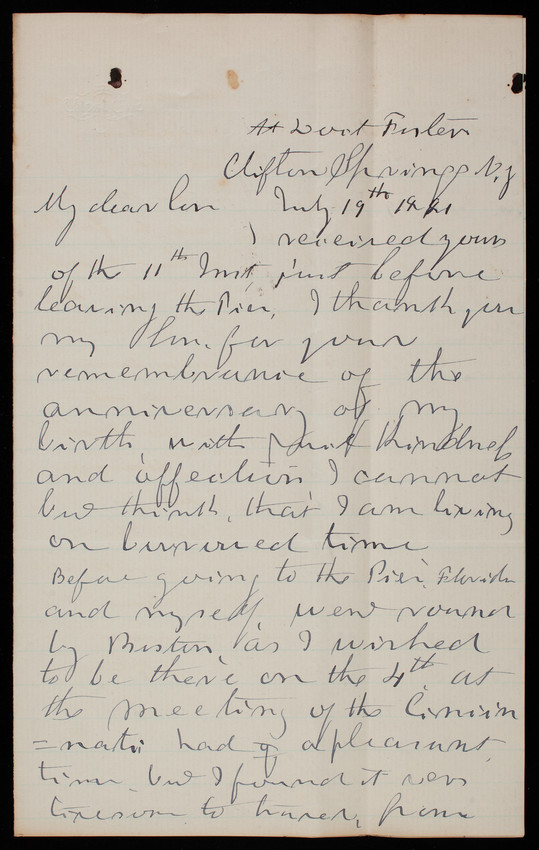 At Doct Fosters
Clifton Springs N,y
My dear Son July 19th 1891
I received yours
of the 11th Inst, just before
leaving the Pier, I thank you
my Son, for your
remembrance of the
anniversary of my
birth, with kindness
and affection I cannot
but think, that I am living
on burrowed time
Before going to the Pier, Florida
and myself went round
by Boston as I wished
to be there on the 4th at
the meeting of the Cincin
=nati had a pleasant
time, but I found it very
tiresome to travel, from